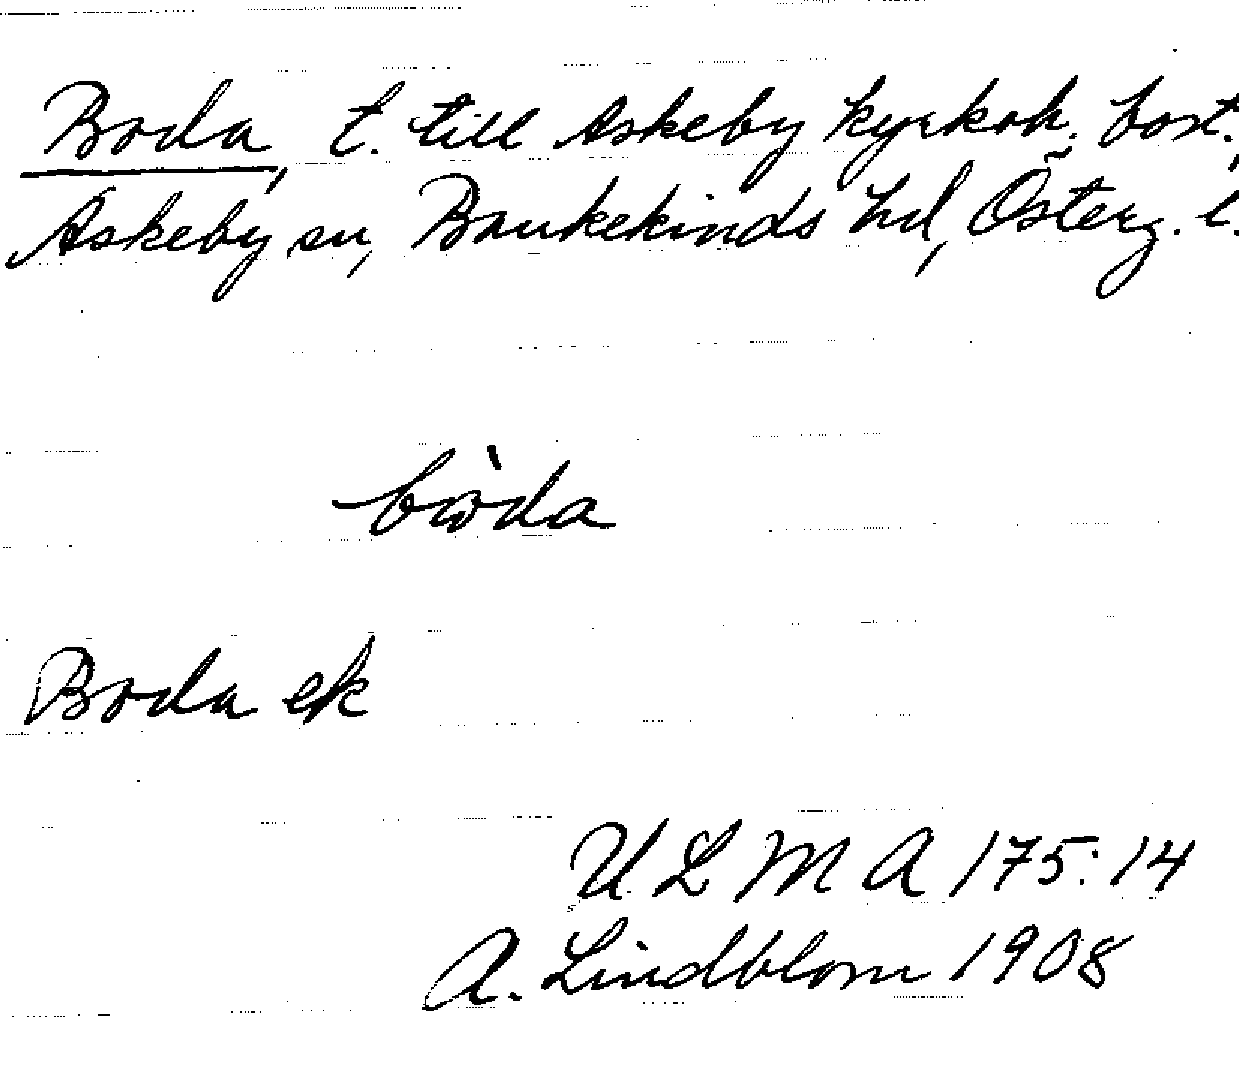 Boda, t. till Askeby kyrkoh. bost.,
Askeby sn, Bankekinds hd, Österg. l.
bὼda
Boda ek
ULMA 175:14
A. Lindblom 1908